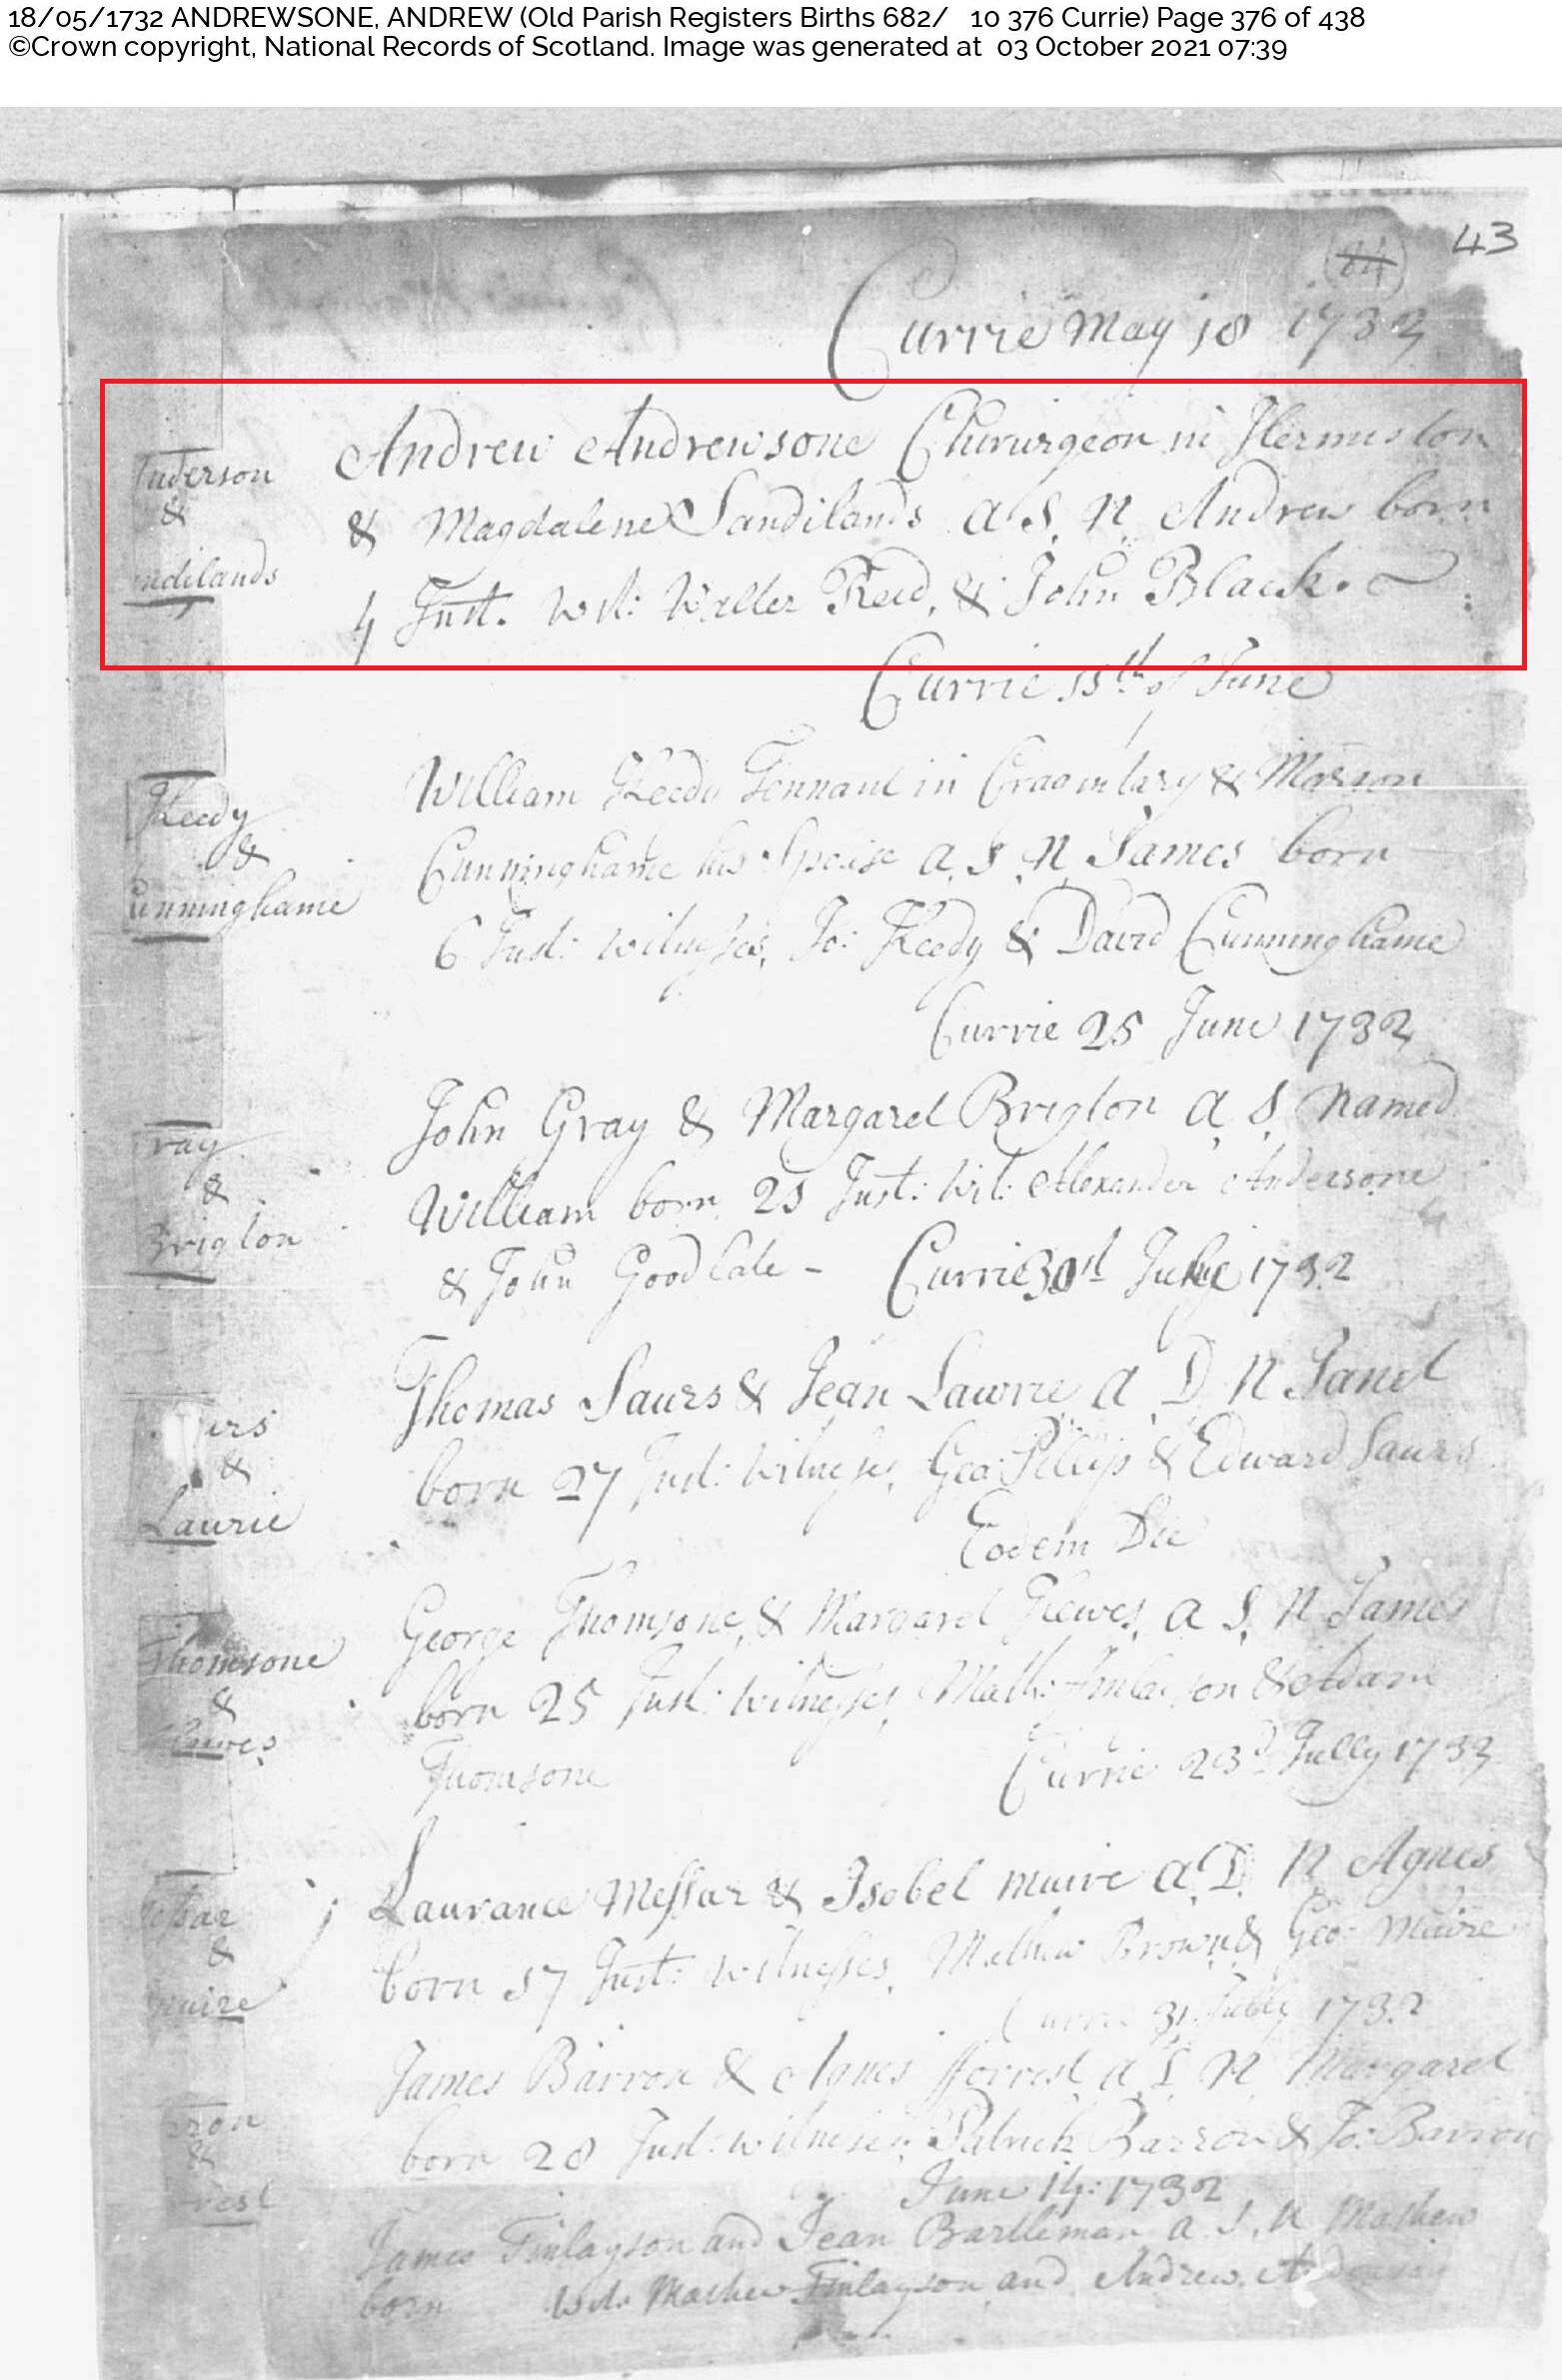 18/05/1732 ANDREWSONE, ANDREW (Old Parish Registers Births 682/ 10 376 Currie) Page 376 of 438
©Crown copyright, National Records of Scotland. Image was generated at 03 October 2021 07:39
43
Currie May 18 1732
Andrew Andrewsone Chirurgeon in Hermiston
& Magdalene Sandilands a S, N, Andrew born
4 Inst. Wit: Walter Reid, & John Black.
Anderson
&
ndilands
Currie 15th of June
William Keedy Tennant in & Marion
Cunninghame his Spouse a, S, N, James born
6 Inst: witnesses, Jo: Keedy & David Cunninghame
Keedy
&
Cunninghame
Currie 25 June 1732
John Gray & Margaret Brigton a, S, Named
William born 25 Inst: Wit: Alexander Andersone
& John Goodlale - Currie 30st 1732
ray
&
Brigton
Thomas Saurs & Jean Lawrie, a, D, N Janet
born 27 Inst: Witnesses, Geo: Pillip & Edward Saurs
urs
&
Laurie
Eodem Die
George Thomsone, & Margaret a, S, N James
born 25 Inst: Witnesses, Math: Finlayson & Adam
Thomsone Currie 23d Jully 1732
Thomsone
&
Laurance Messar & Isobel muire a, D, N Agnes
born 17 Inst: witnesses, Mathew Brown & Geo: Muire
ssar
&
muire
Currie 31 Jully 1732
James Barron & Agnes fforrest, a, N, Margaret
born 28 Inst: witneses, Patrick Barron & Jo: Barron
rron
&
rest
June 14: 1732
James Finlayson and Jean Bartleman a, S, N Mathew
born Wit: Mathew Finlayson and Andrew